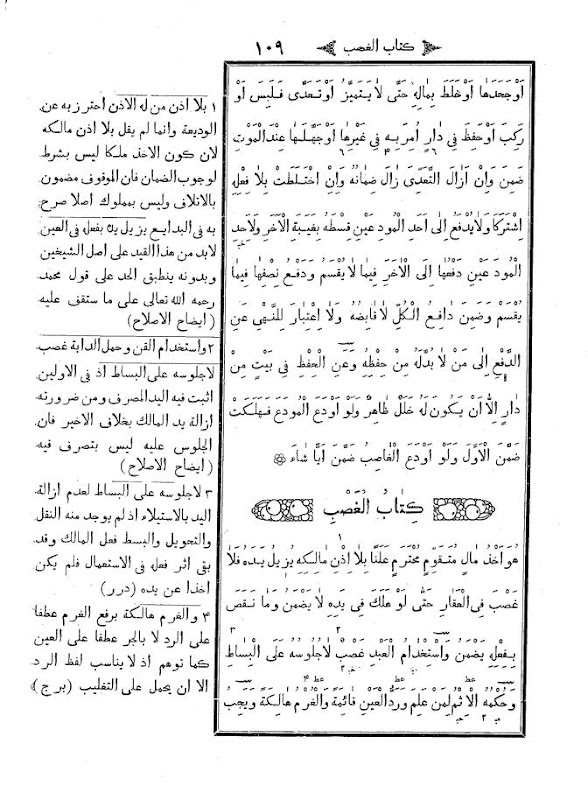 كتاب الغصب ١٠٩
اَوْ جَحَدَهَا اَوْ خَلَطَ بِمَالِهِ حَتَّى لَا يَتَمَيَّزُ اَوْ تَعَدَّى فَلَبِسَ اَوْ
رَكِبَ اَوْ حَفِظَ فِى دَارٍ اُمِرَ بِهِ فِى غَيْرِهَا اَوْ جَهَّلَهَا عِنْدَ الْمَوْتِ
ضَمِنَ وَاِنْ اَزَالَ التَّعَدِّىَ زَالَ ضَمَانُهُ وَاِنِ اخْتَلَطَتْ بِلَا فِعْلِهِ
اِشْتَرَكَا وَلَا يُدْفَعُ اِلَى اَحَدِ الْمُودِعَيْنِ قِسْطُهُ بِغَيْبَةِ الْآخَرِ وَلِاَحَدِ
الْمُودَعَيْنِ دَفْعُهَا اِلَى الْآخَرِ فِيمَا لَا يُقْسَمُ وَدَفْعُ نِصْفِهَا فِيمَا
يُقْسَمُ وَضَمِنَ دَافِعُ الْكُلِّ لَا قَابِضُهُ وَلَا اعْتِبَارَ لِلنَّهْىِ عَنِ
الدَّفْعِ اِلَى مَنْ لَا بُدَّ لَهُ مِنْ حِفْظِهِ وَعَنِ الْحِفْظِ فِى بَيْتٍ مِنْ
دَارٍ اِلَّا اَنْ يَكُونَ لَهُ خَلَلٌ ظَاهِرٌ وَلَوْ اَوْدَعَ الْمُودَعُ فَهَلَكَتْ
ضَمَّنَ الْاَوَّلَ وَلَوْ اَوْدَعَ الْغَاصِبُ ضَمَّنَ اَيًّا شَاءَ
كِتَابُ الْغَصْبِ
هُوَ اَخْذُ مَالٍ مُتَقَوِّمٍ مُحْتَرَمٍ عَلَنًا بِلَا اِذْنِ مَالِكِهِ يُزِيلُ يَدَهُ فَلَا
غَصْبَ فِى الْعَقَارِ حَتَّى لَوْ هَلَكَ فِى يَدِهِ لَا يَضْمَنُ وَمَا نَقَصَ
بِفِعْلِهِ يَضْمَنُ وَاسْتِخْدَامُ الْعَبْدِ غَصْبٌ لَا جُلُوسُهُ عَلَى الْبِسَاطِ
وَحُكْمُهُ الْاِثْمُ لِمَنْ عَلِمَ وَرَدُّ الْعَيْنِ قَائِمَةً وَالْغُرْمُ هَالِكَةً وَيَجِبُ
١ بلا اذن من له الاذن احترز به عن
الوديعة وانما لم يقل بلا اذن مالكه
لان كون الاخذ ملكا ليس بشرط
لوجوب الضمان فان الموقوف مضمون
بالاتلاف وليس بمملوك اصلا صرح
به فى البدايع يزيل يده بفعل فى العين
لابد من هذا القيد على اصل الشيخين
وبدونه ينطبق الحد على قول محمد
رحمه الله تعالى على ما ستقف عليه
( ايضاح الاصلاح )
٢ واستخدام القن وحمل الدابة غصب
لا جلوسه على البساط اذ فى الاولين
اثبت فيه اليد المصرف ومن ضرورته
ازالة يد المالك بخلاف الاخير فان
الجلوس عليه ليس بتصرف فيه
( ايضاح الاصلاح )
٣ لا جلوسه على البساط لعدم ازالة
اليد بالاستيلاء اذ لم يوجد منه النقل
والتحويل والبسط فعل المالك وقد
بقى اثر فعله فى الاستعمال فلم يكن
اخذا عن يده ( درر )
۴ والغرم هالكة برفع الغرم عطفا
على الرد لا بالجر عطفا على العين
كما توهم اذ لا يناسب لفظ الرد
الا ان يحمل على التغليب ( برج )